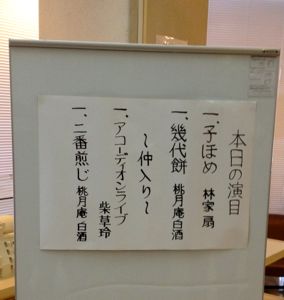 本日の演目
一、子ほめ 林家 扇
一、幾代餅 桃月庵白酒
〜仲入り〜
一、アコーディオンライブ
柴草玲
一、二番煎じ 桃月庵白酒